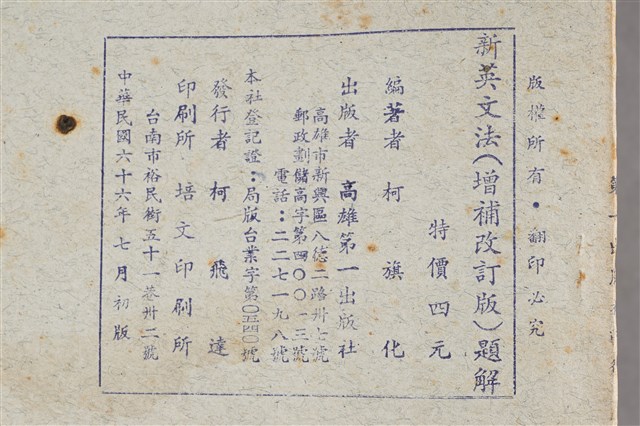 版權所有●翻印必究
新英文法(增補改訂版)題解
特價四元
編著者 柯旗化
出版者 高雄第一出版社
高雄市新興區八德二路卅七號
郵政劃儲高字第四〇〇一三號
電話:二二七一九八號
本社登記證:局版台業字第〇五四〇號
發行者 柯飛達
印刷所 培文印刷所
台南市裕民街五十一巷卅二號
中華民國六十六年七月初版